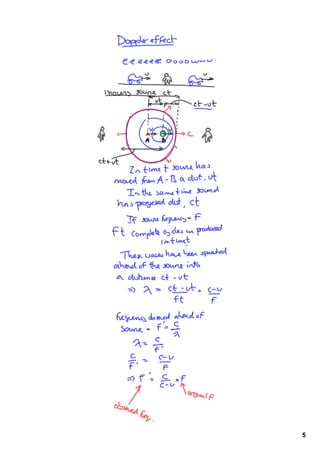 Doppler effect
e e e e e e o o o o u u u.
v v
1 moving source ct
vt
ct-vt
A B c
ct+vt v
In time t source has
moved from A-B a dist. vt
In the same time sound
has progressed dist, ct
If source frequency = F
Ft complete cycles are produced
in time t
These waves have been squashed
ahead of the source into
a distance ct - vt
⇒ λ = ct - vt / ft = c-v / F
frequency observed ahead of
source = F' = C / λ
λ = C / F'
C / F' = C-v / F
⇒ F' = C / C-v × F
original F
observed freq.
5